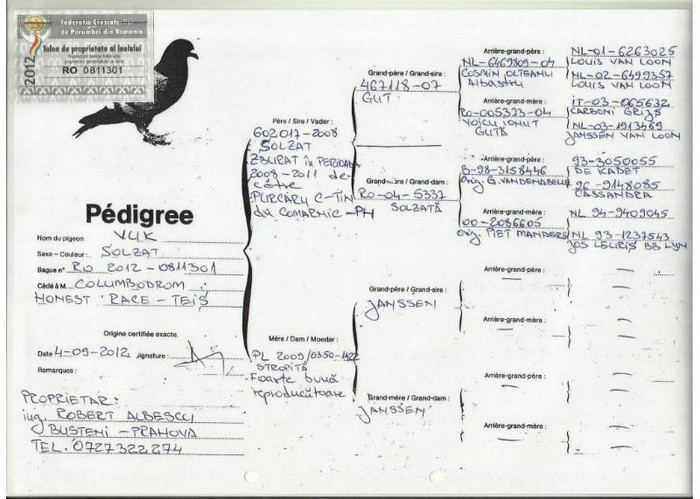 Federatia Crescat
de Porumbei din Romania
Talon de proprietate al inelului
2012
RO 0811301
Pédigree
Nom du pigeon VUK
Sexe - Couleur : SOLZAT
Bague n° RO 2012 - 0811301
Cédé à M. COLUMBODROM
HONEST RACE - TEIS
Origine certifiée exacte.
Date 4-09-2012 signature :
Remarques :
PROPRIETAR:
ing. ROBERT ALBESCU
BUSTENI - PRAHOVA
TEL. 0727322274
Père / Sire / Vader :
602017-2008
SOLZAT
ZBURAT în PERIOADA
2008-2011 de
către
PURCARU C-TIN
du COMARNIC-PH
Mère / Dam / Moeder :
PL 2009/0350-1422
STROPITĂ
Foarte bună
reproducătoare
Grand-père / Grand-sire :
467118-07
GUT
Grand-mère / Grand-dam :
RO-04-5337
SOLZATĂ
Grand-père / Grand-sire :
JANSSEN
Grand-mère / Grand-dam :
JANSSEN
Arrière-grand-père :
NL-6469809-04
COSMIN OLTEANU
Albastru
Arrière-grand-mère :
RO-005373-04
VOICU IONUT
GUTĂ
Arrière-grand-père :
B-98-3158446
Orig. G. VANDENABEELE
Arrière-grand-mère :
00-2086605
orig. PIET MANDERS
Arrière-grand-père :
Arrière-grand-mère :
Arrière-grand-père :
Arrière-grand-mère :
NL-01-6263025
LOUIS VAN LOON
NL-02-6499357
LOUIS VAN LOON
IT-03-065632
CARBONI GRIZS
NL-03-1913469
JANSSEN VAN LOON
93-3050055
DE KADET
96-9148085
CASSANDRA
NL 94-9409045
NL 93-1237543